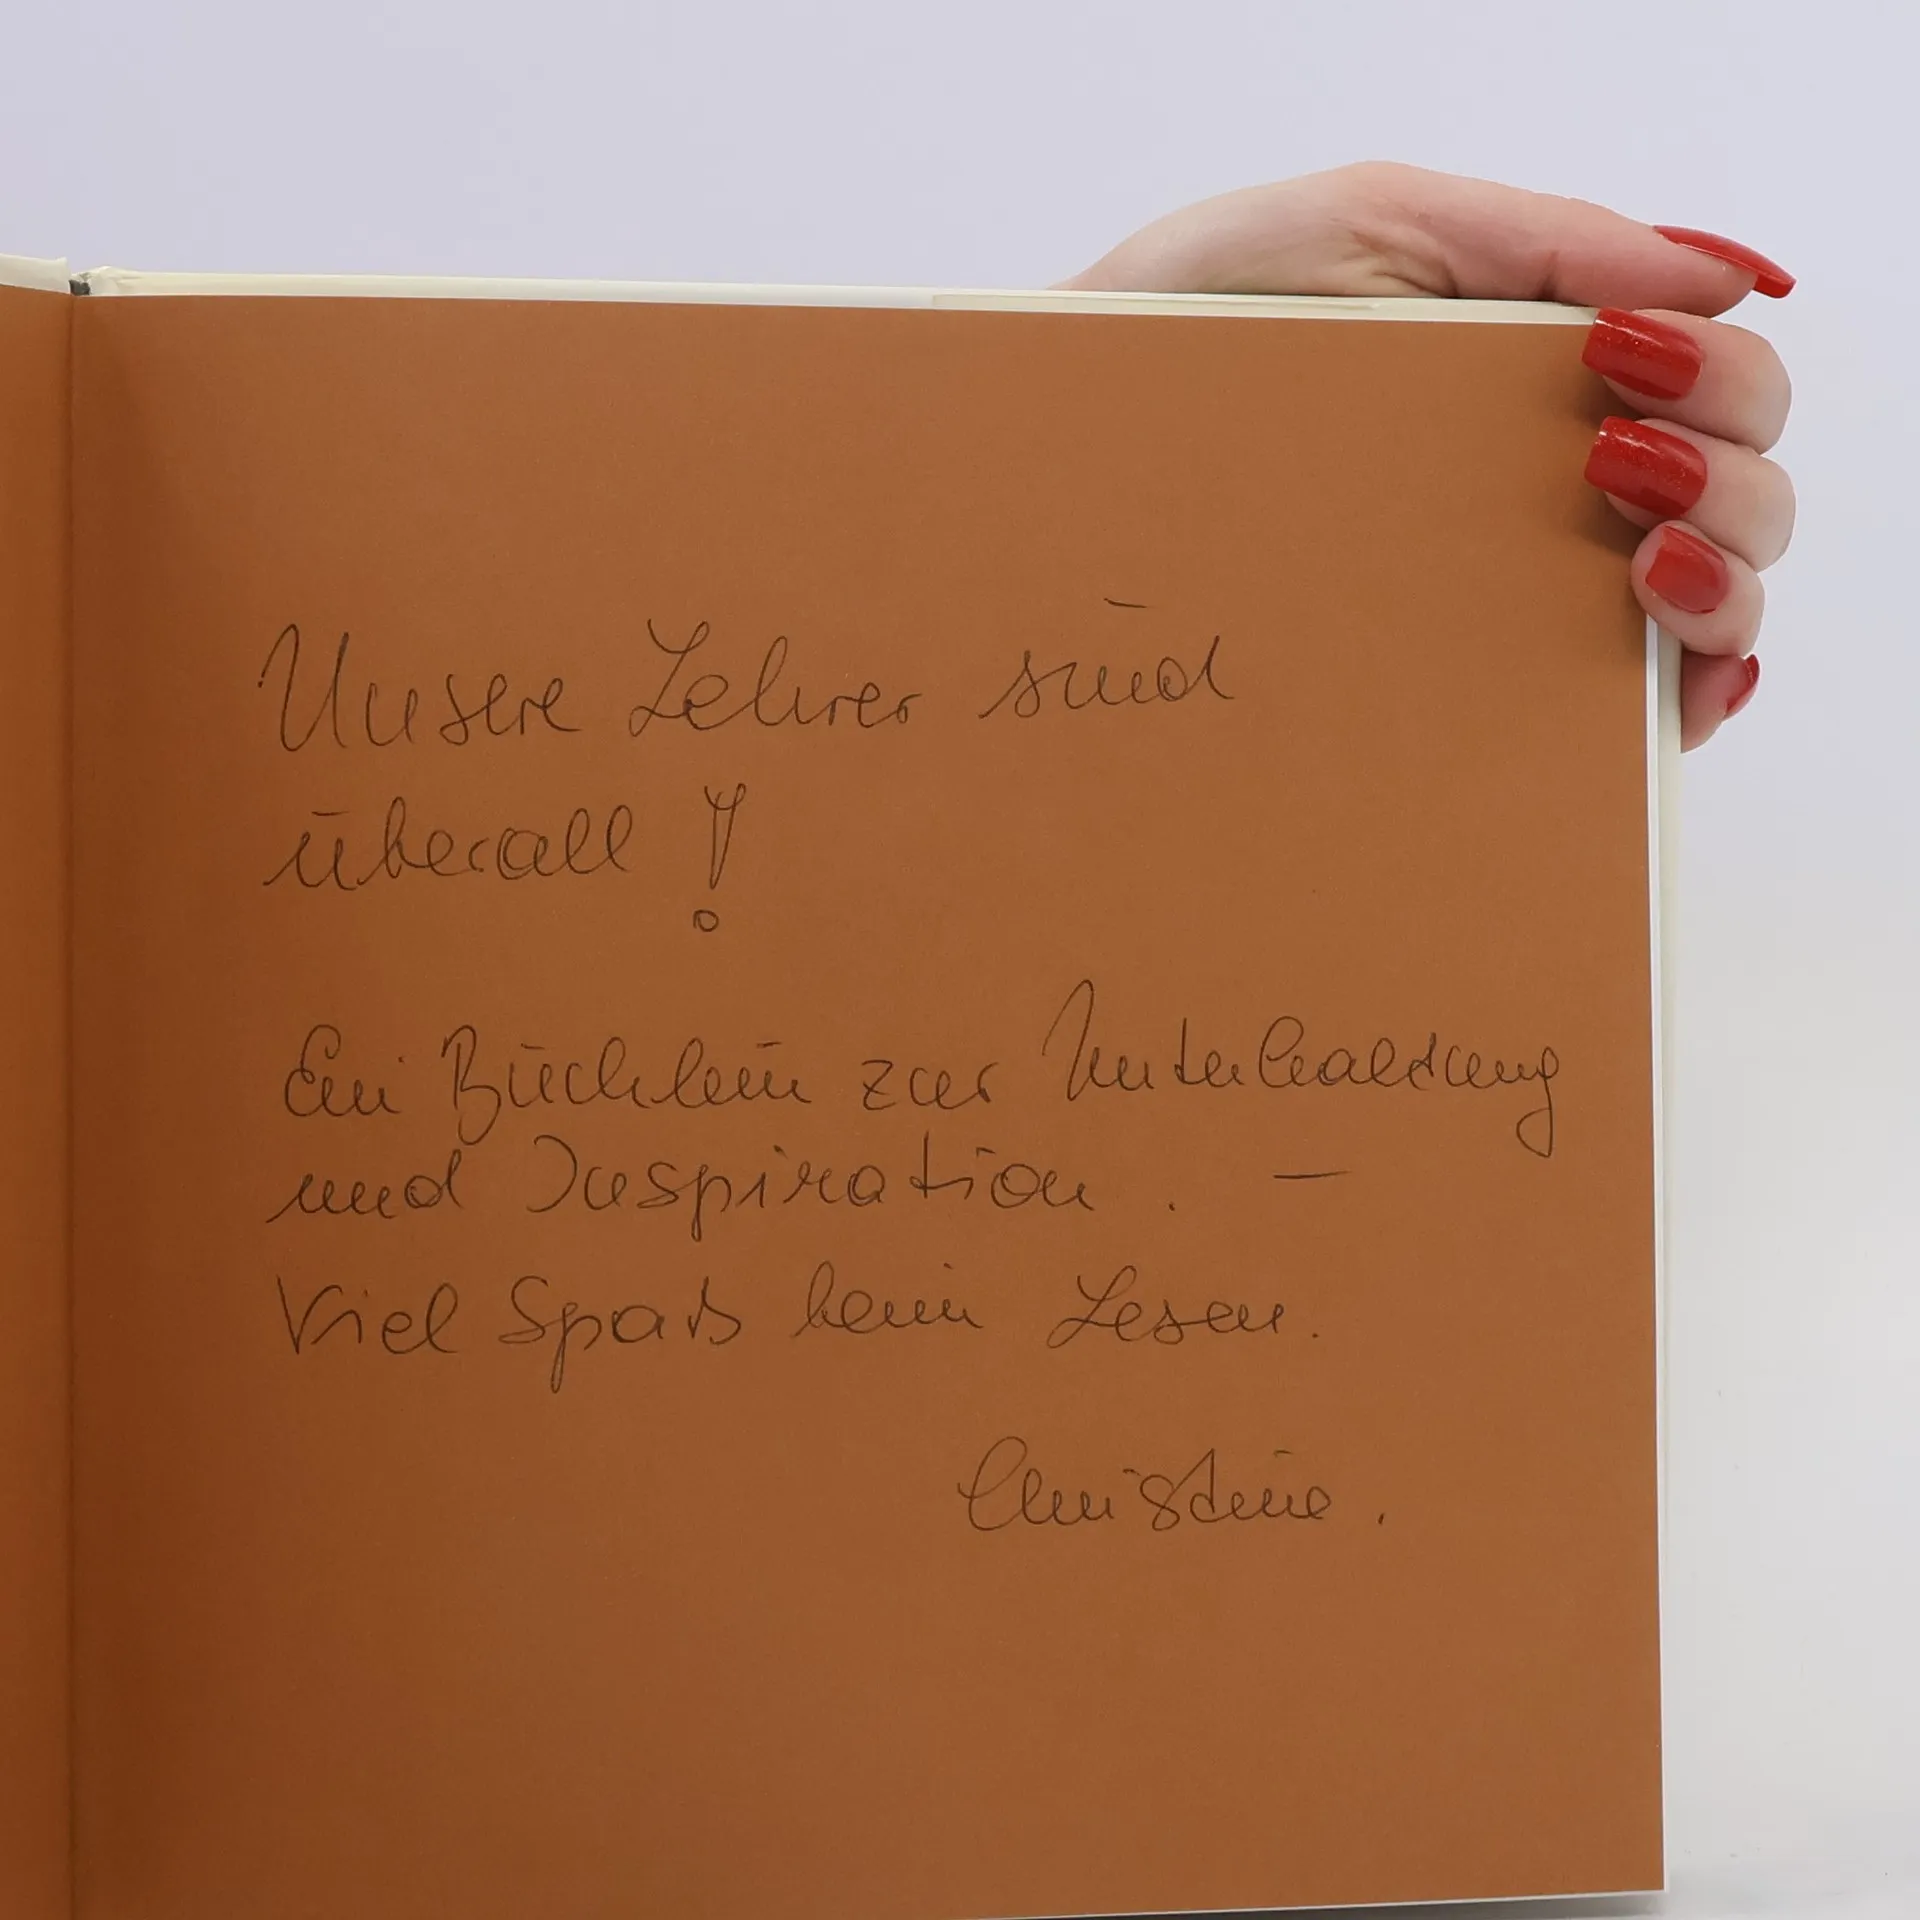 Unsere Lehrer sind
überall!
Ein Büchlein zur Unterhaltung
und Inspiration. –
Viel Spaß beim Lesen.
Christine.